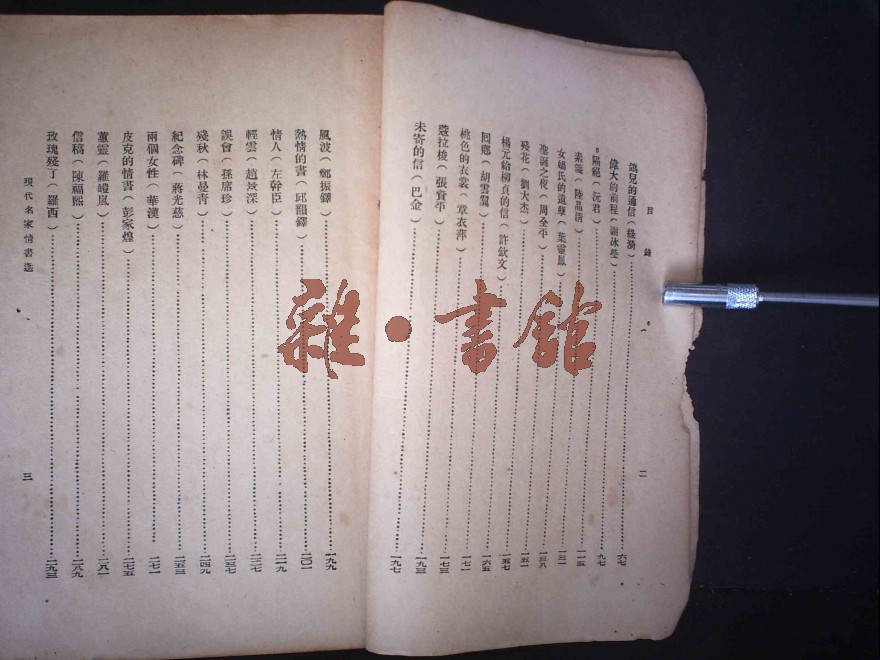 目錄
鴿兒的通信（綠漪）……六七
偉大的前程（謝冰瑩）……九七
隔絕（沅君）……一一五
素箋（陸晶清）……一三一
女媧氏的遺孽（葉靈鳳）……一三八
誕之夜（周全平）……一五一
殘花（劉大杰）……一五七
楊元給楊貞的信（許欽文）……一六五
同鄉（胡雲翼）……一七一
桃色的衣裳（章衣萍）……一七三
蔻拉梭（張資平）……一九三
未寄的信（巴金）……一九七
二
風波（鄭振鐸）……一九九
熱情的書（邱韻鐸）……二〇一
情人（左幹臣）……二一九
輕雲（趙景深）……二二七
誤會（孫席珍）……二三七
殘秋（林曼青）……二四九
紀念碑（蔣光慈）……二五三
兩個女性（華漢）……二七一
皮克的情書（彭家煌）……二七五
薰靈（羅皚嵐）……二八一
信稿（陳福熙）……二八九
玫瑰殘了（羅西）……二九三
現代名家情書選
三
雜・書館